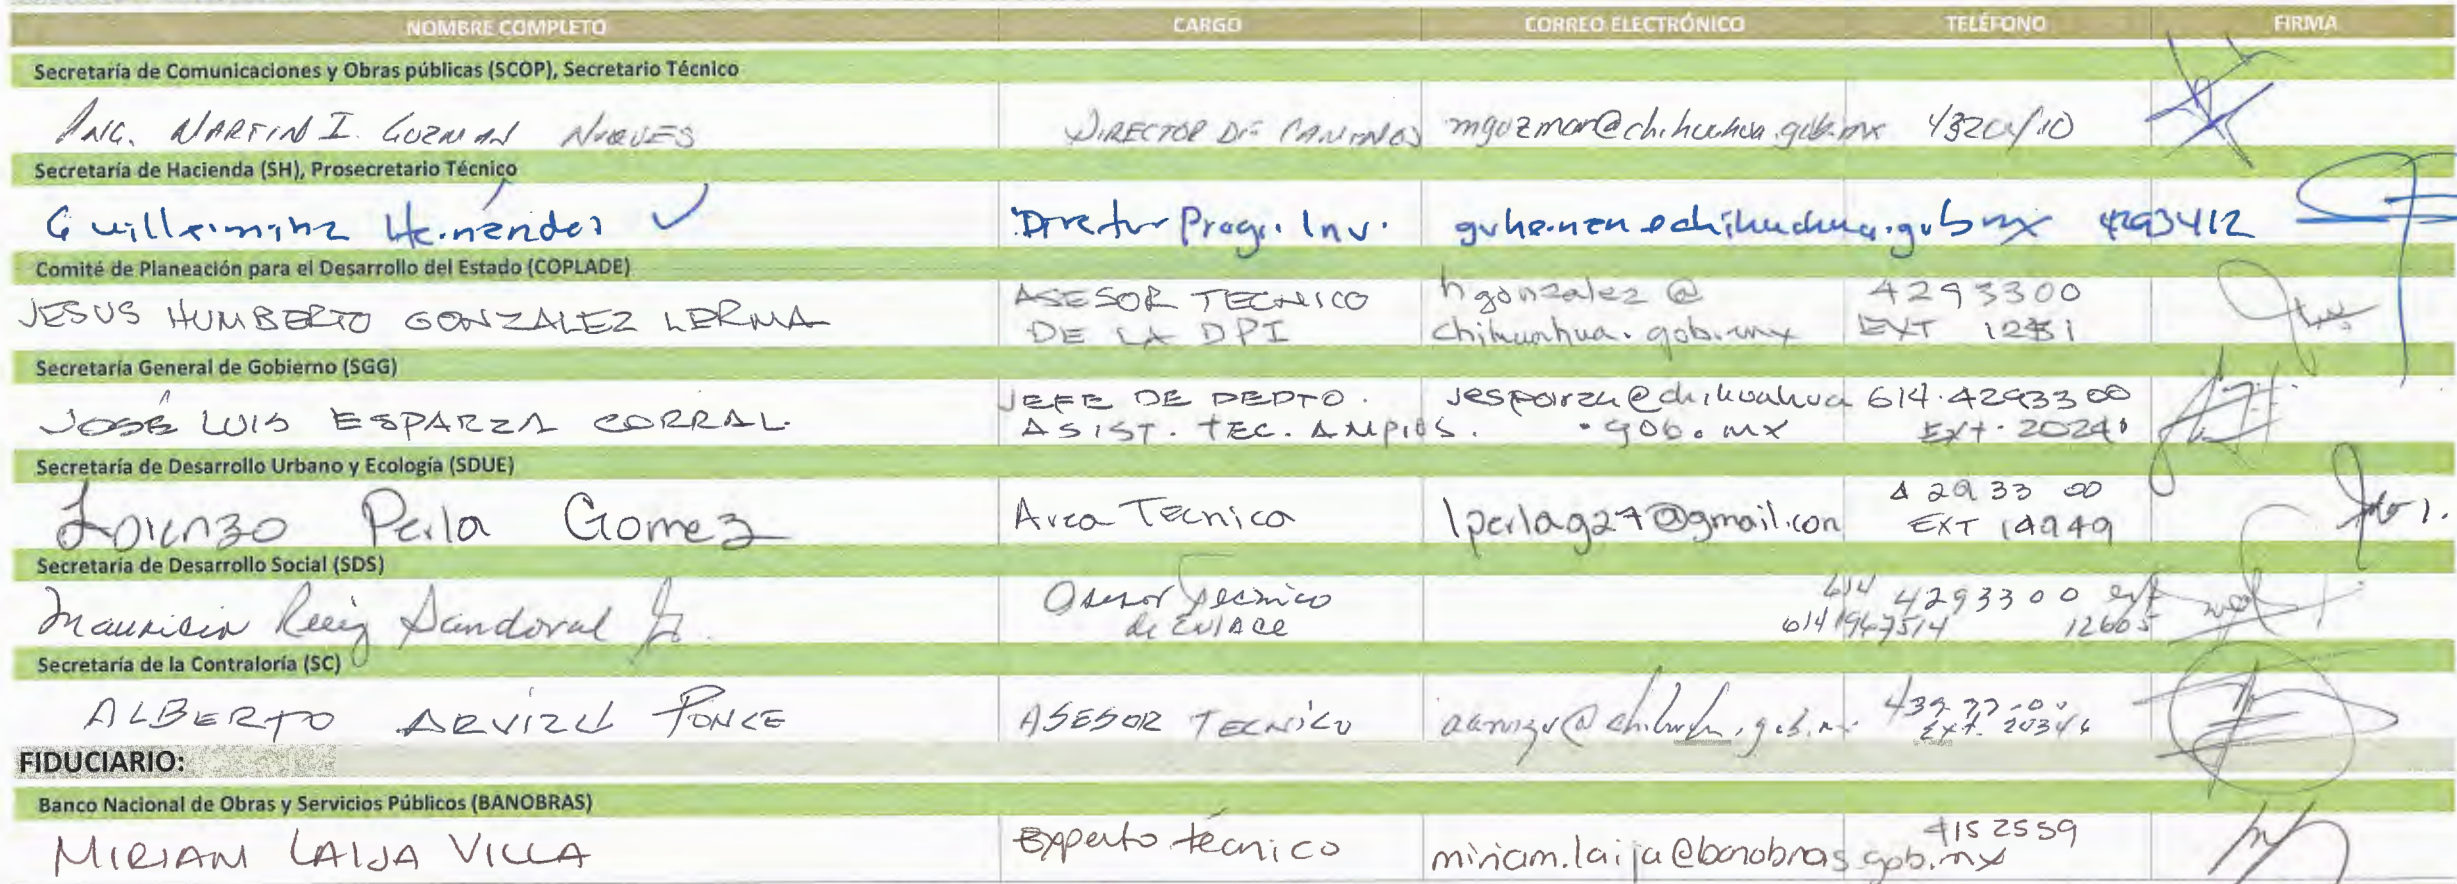 NOMBRE COMPLETO CARGO CORREO ELECTRÓNICO TELÉFONO FIRMA
Secretaría de Comunicaciones y Obras públicas (SCOP), Secretario Técnico
ING. MARTIN I. GUZMAN DIRECTOR DE CAMINOS @chihuahua.gob.mx
Secretaría de Hacienda (SH), Prosecretario Técnico
Guillermina Hernández Director Progr. Inv. 4293412
Comité de Planeación para el Desarrollo del Estado (COPLADE)
JESUS HUMBERTO GONZALEZ LERMA ASESOR TECNICO hgonzalez@ 4293300
DE LA DPI chihuahua.gob.mx EXT 1251
Secretaría General de Gobierno (SGG)
JOSÉ LUIS ESPARZA CORRAL. JEFE DE DEPTO. jesparza@chihuahua 614.4293300
ASIST. TEC. A MPIOS. .gob.mx Ext. 20241
Secretaría de Desarrollo Urbano y Ecología (SDUE)
Lorenzo Perla Gomez Area Tecnica lperlag27@gmail.con 4293300
EXT 14949
Secretaría de Desarrollo Social (SDS)
Mauricio Ruiz Sandoval Asesor Tecnico 614 4293300 ext
de Enlace 6141967514 12605
Secretaría de la Contraloría (SC)
ALBERTO ARVIZU PONCE ASESOR TECNICO
Ext. 20346
FIDUCIARIO:
Banco Nacional de Obras y Servicios Públicos (BANOBRAS)
MIRIAM LAIJA VILLA Experto técnico miriam.laija@banobras.gob.mx 4152559